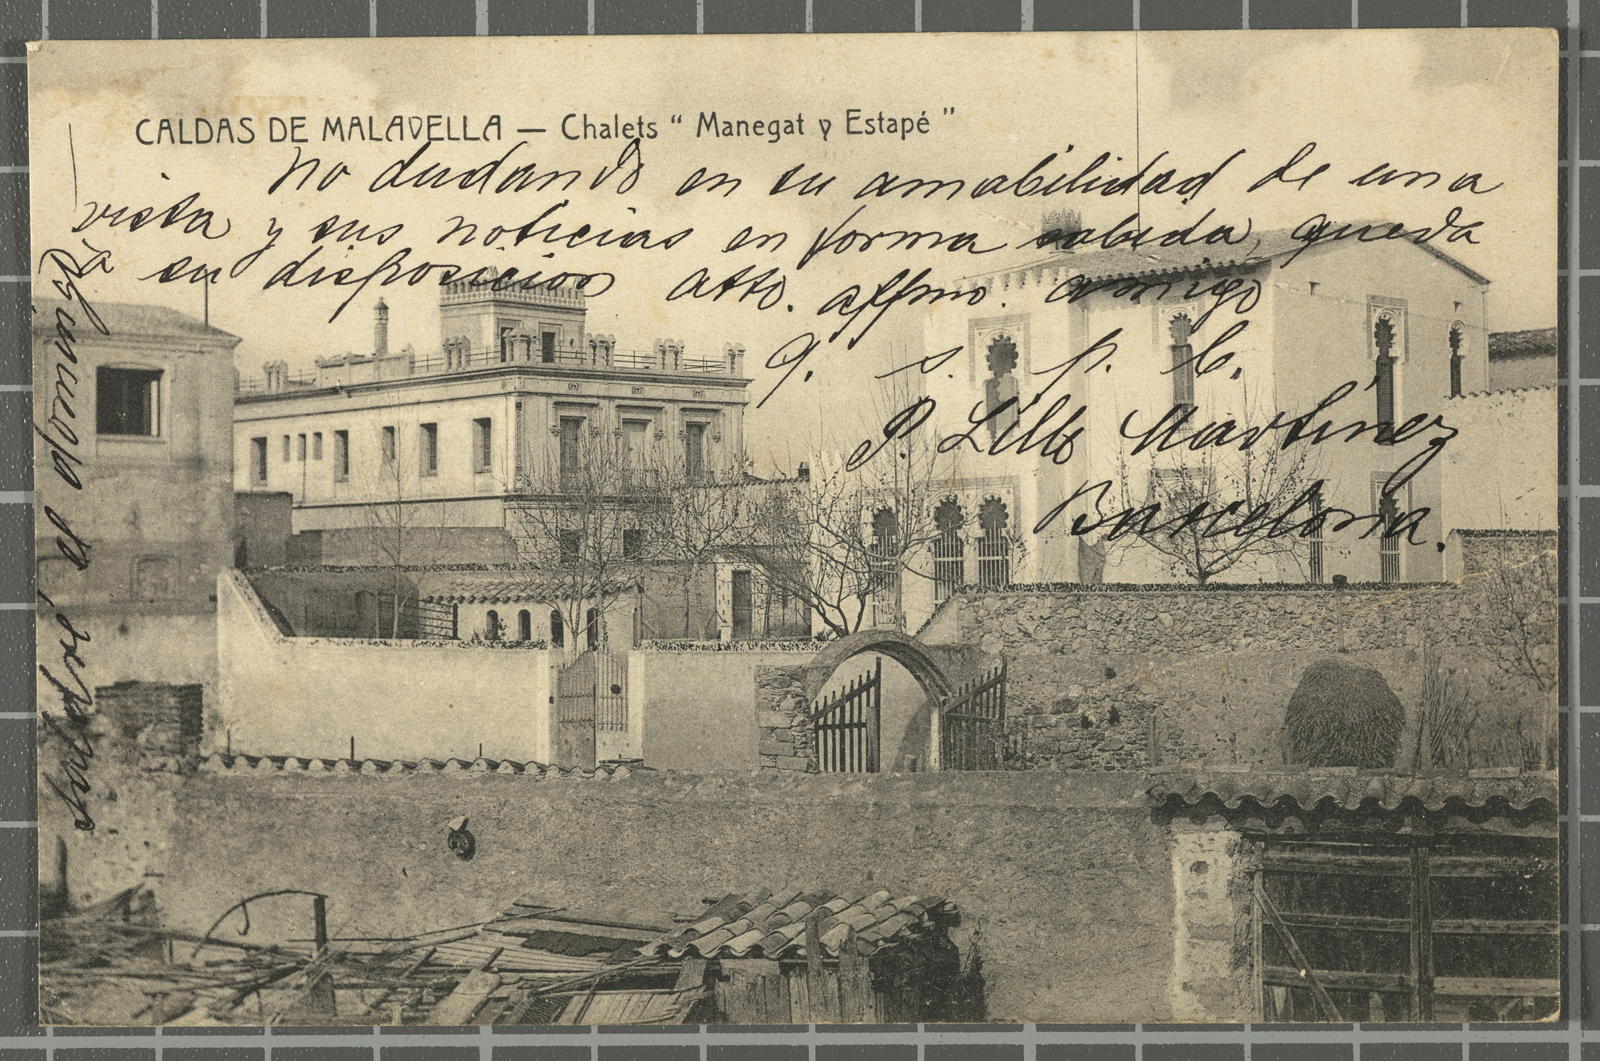 CALDAS DE MALAVELLA — Chalets " Manegat y Estapé "
No dudando en su amabilidad de una
visita y sus noticias en forma sabida, queda
a su disposicion atto. affmo. amigo
q. s. p. b.
P. Martinez
Barcelona.
el domingo